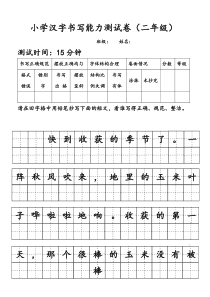 小学汉字书写能力测试卷（二年级）
班级： 姓名：
测试时间：15分钟
书写正确规范 摆放正确匀匀 字体结构合理 卷面情况 分数 等级
格式 错别 书写 摆放 结构比 书写 涂木 未抄完
错误 字 出格 歪斜 例失调 有体
请在田字格中用铅笔抄写下面的短文，看谁写得正确、规范、整洁。
快到收获的季节了。一
阵秋风吹来，地里的玉米叶
子哗啦啦地响。收获的第一
天，那个很棒的玉米没有被
棒